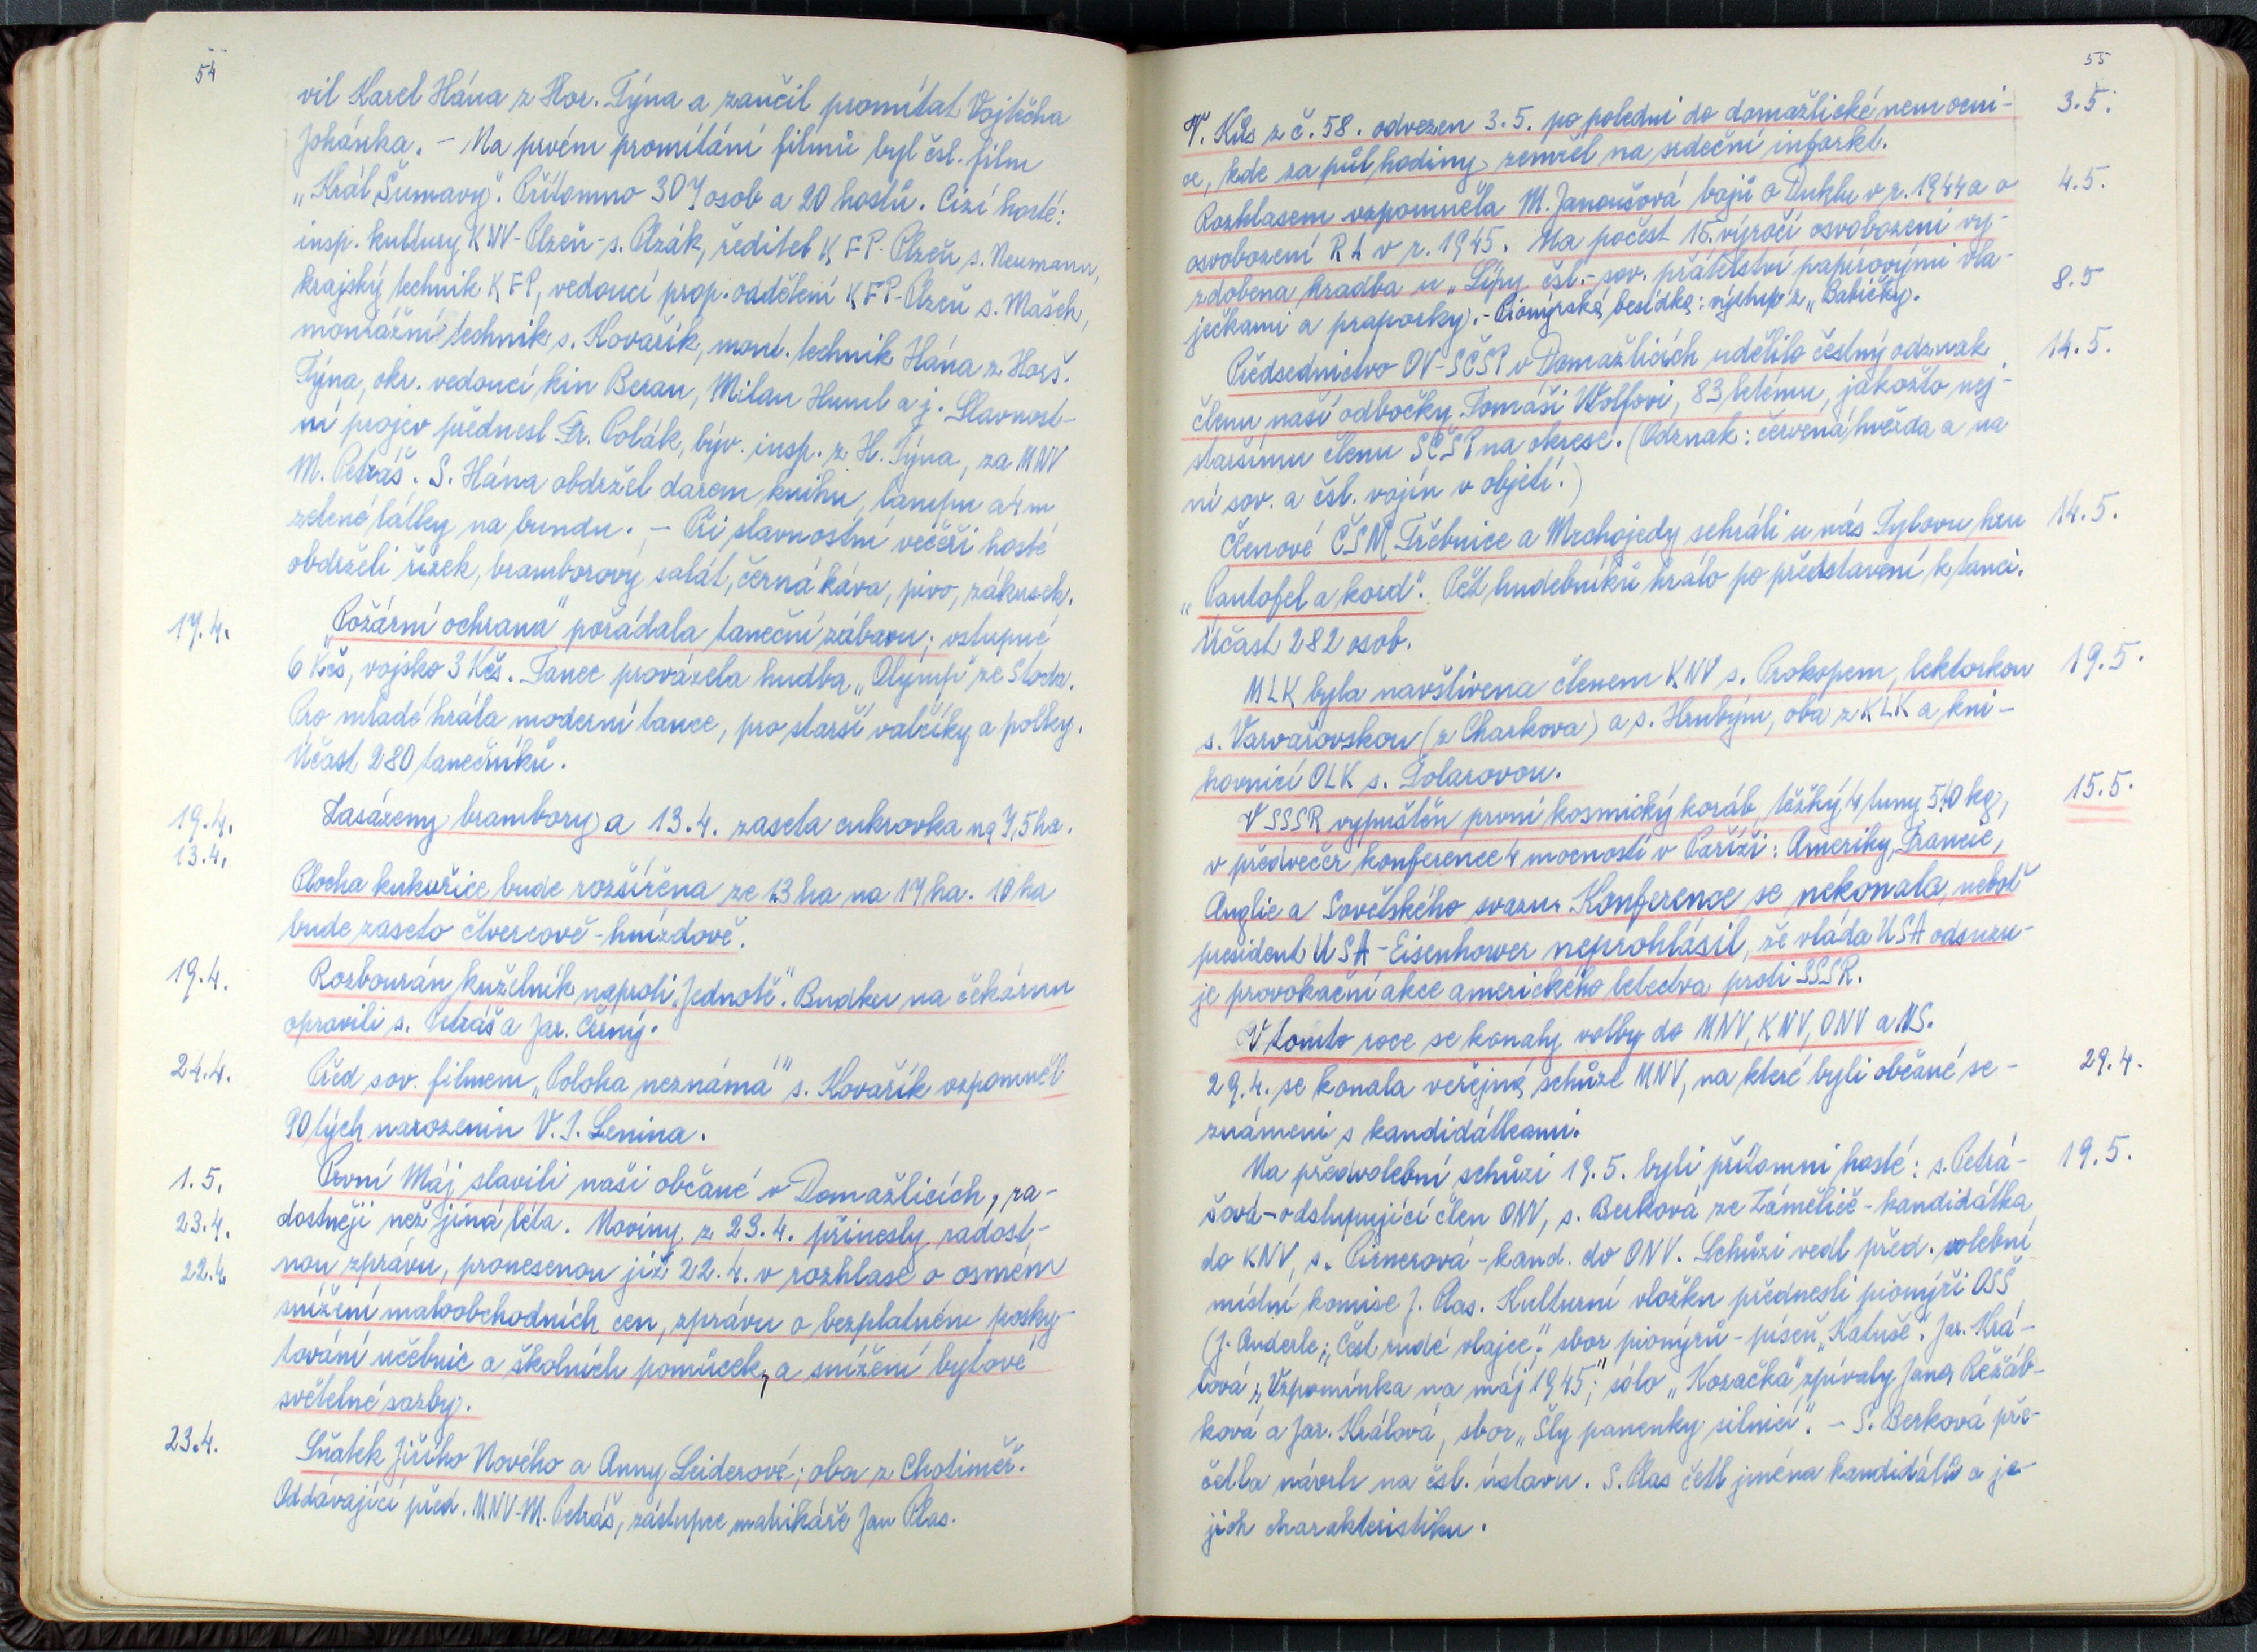 54
vil Karel Hána z Hor. Týna a zaučil promítat Vojtěcha
Johánka. - Na prvém promítání filmů byl čsl. film
„Král Šumavy". Přítomno 307 osob a 20 hostů. Cizí hosté:
insp. kultury KNV-Plzeň-s. Plzák, ředitel KFP-Plzeň s. Neumann,
krajský technik KFP, vedoucí prop. oddělení KFP-Plzeň s. Mašek,
montážní technik s. Kovařík, mont. technik Hána z Horš.
Týna, okr. vedoucí kin Beran, Milan Huml a j. Slavnost-
ní projev přednesl Fr. Polák, býv. insp. z H. Týna, za MNV
M. Petráš. S. Hána obdržel darem knihu, lampu a 4 m
zelené látky na bundu. - Při slavnostní večeři hosté
obdrželi řízek, bramborový salát, černá káva, pivo, zákusek.
17.4. „Požární ochrana" pořádala taneční zábavu; vstupné
6 Kčs, vojsko 3 Kčs. Tanec provázela hudba „Olymp" ze Stoda.
Pro mladé hrála moderní tance, pro starší valčíky a polky.
Účast 280 tanečníků.
19.4. Zasázeny brambory a 13.4. zaseta cukrovka na 7,5 ha.
13.4.
Plocha kukuřice bude rozšířena ze 13 ha na 17 ha. 10 ha
bude zaseto čtvercově-hnízdově.
19.4. Rozbourán kuželník naproti „Jednotě". Budku na čekárnu
opravili s. Petráš a Jar. Černý.
24.4. Před sov. filmem „Poloha neznámá" s. Kovařík vzpomněl
90tých narozenin V. I. Lenina.
1.5. První Máj slavili naši občané v Domažlicích, ra-
23.4. dostněji než jiná léta. Noviny z 23.4. přinesly radost-
22.4. nou zprávu, pronesenou již 22.4. v rozhlase o osmém
snížení maloobchodních cen, zprávu o bezplatném posky-
tování učebnic a školních pomůcek, a snížení bytové
světelné sazby.
23.4. Sňatek Jiřího Nového a Anny Leiderové; oba z Chotiměř.
Oddávající před. MNV-M. Petráš, zástupce matrikáře Jan Plas.
55
V. Kůs z č. 58. odvezen 3.5. po poledni do domažlické nemocni- 3.5.
ce, kde za půl hodiny zemřel na srdeční infarkt.
Rozhlasem vzpomněla M. Janoušová bojů o Duklu v r. 1944 a o 4.5.
osvobození RA v r. 1945. Na počest 15. výročí osvobození vy-
zdobena hradba u „Lípy čsl.-sov. přátelství papírovými vla- 8.5
ječkami a praporky. - Pionýrská besídka: výstup z „Babičky.
Předsednictvo OV-SČSP v Domažlicích udělilo čestný odznak 14.5.
členu naší odbočky Tomáši Wolfovi, 83 letému, jakožto nej-
staršímu členu SČSP na okrese. (Odznak: červená hvězda a na
ní sov. a čsl. vojín v objetí.)
Členové ČSM Třebnice a Mrchojedy sehráli u nás Tylovu hru 14.5.
„Pantofel a kord". Pět hudebníků hrálo po představení k tanci.
Účast 282 osob.
MLK byla navštívena členem KNV s. Prokopem, lektorkou 19.5.
s. Varvařovskou (z Charkova) a s. Hrubým, oba z KLK a kni-
hovnicí OLK s. Tolarovou.
V SSSR vypuštěn první kosmický koráb, těžký 4 tuny 540 kg, 15.5.
v předvečer konference 4 mocností v Paříži: Ameriky, Francie,
Anglie a Sovětského svazu. Konference se nekonala, neboť
president USA-Eisenhower neprohlásil, že vláda USA odsuzu-
je provokační akce amerického letectva proti SSSR.
V tomto roce se konaly volby do MNV, KNV, ONV a NS.
29.4. se konala veřejná schůze MNV, na které byli občané se- 29.4.
známeni s kandidátkami.
Na předvolební schůzi 19.5. byli přítomni hosté: s. Petrá- 19.5.
šová-odstupující člen ONV, s. Berková ze Zámělíč-kandidátka
do KNV, s. Pirnerová-kand. do ONV. Schůzi vedl před. volební
místní komise J. Plas. Kulturní vložku přednesli pionýři OSŠ
(J. Anderle: „Čest rudé vlajce," sbor pionýrů-píseň „Katuše". Jar. Krá-
lová: „Vzpomínka na máj 1945;" sólo „Kozačka" zpívaly Jana Řežáb-
ková a Jar. Králová, sbor „Šly panenky silnicí". - S. Berková pře-
četla návrh na čsl. ústavu. S. Plas četl jména kandidátů a je-
jich charakteristiku.